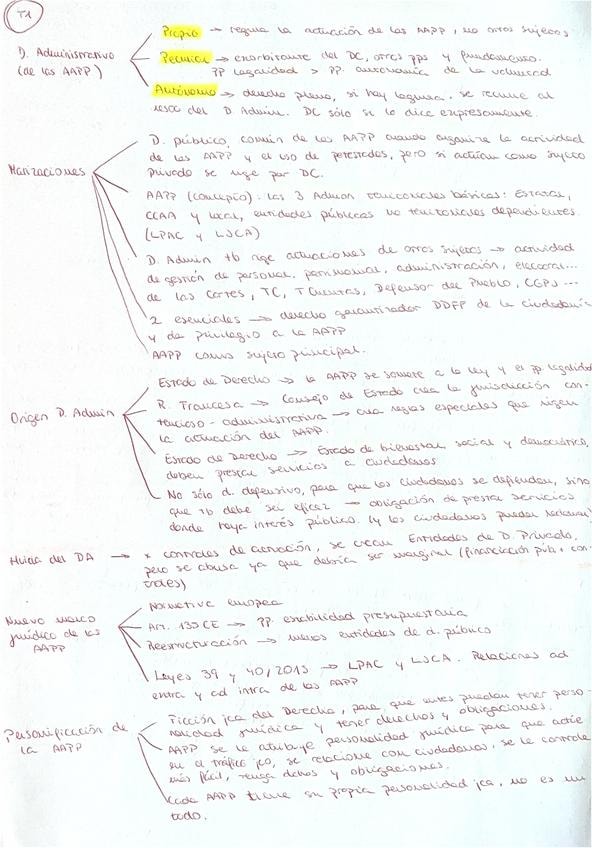 T1
D. Administrativo (de las AAPP)
Propio → regula la actuación de las AAPP, no otros sujetos
Peculiar → exorbitante del DC, otros pps y fundamentos.
PP legalidad > PP. autonomía de la voluntad
Autónomo → derecho pleno, si hay laguna, se recurre al
resto del D. Admin. DC sólo si lo dice expresamente.
Matizaciones
D. público, común de las AAPP cuando organiza la actividad
de las AAPP y el uso de potestades, pero si actúan como sujeto
privado se rige por DC.
AAPP (concepto): las 3 Admon territoriales básicas: Estatal,
CCAA y local, entidades públicas no territoriales dependientes.
(LPAC y LJCA)
D. Admin tb rige actuaciones de otros sujetos → actividad
de gestión de personal, patrimonial, administración, electoral...
de las Cortes, TC, TCuentas, Defensor del Pueblo, CGPJ...
2 esenciales → derecho garantizador DDFF de la ciudadanía
y de privilegio a la AAPP
AAPP como sujeto principal.
Origen D. Admin
Estado de Derecho → la AAPP se somete a la ley y el pp. legalidad
R. Francesa → Consejo de Estado crea la jurisdicción con-
tencioso-administrativa → crea reglas especiales que rigen
la actuación del AAPP.
Estado de Derecho → Estado de bienestar, social y democrático,
deben prestar servicios a ciudadanos
No sólo d. defensivo, para que los ciudadanos se defiendan, sino
que tb debe ser eficaz → obligación de prestar servicios
donde haya interés público. (y los ciudadanos puedan reclamar)
Huida del DA → x controles de actuación, se crean Entidades de D. Privado,
pero se abusa ya que debería ser marginal (financiación púb, con-
troles)
Nuevo marco
jurídico de las
AAPP
Normativa europea
Art. 135 CE → PP. estabilidad presupuestaria
Reestructuración → menos entidades de d. público
Leyes 39 y 40/2015 → LPAC y LJCA. Relaciones ad
extra y ad intra de las AAPP
Personificación de
la AAPP
Ficción jca del Derecho, para que entes puedan tener perso-
nalidad jurídica y tener derechos y obligaciones.
AAPP se le atribuye personalidad jurídica para que actúe
en el tráfico jco, se relacione con ciudadanos, se le controle
más fácil, tenga dchos y obligaciones.
Cada AAPP tiene su propia personalidad jca, no es un
todo.